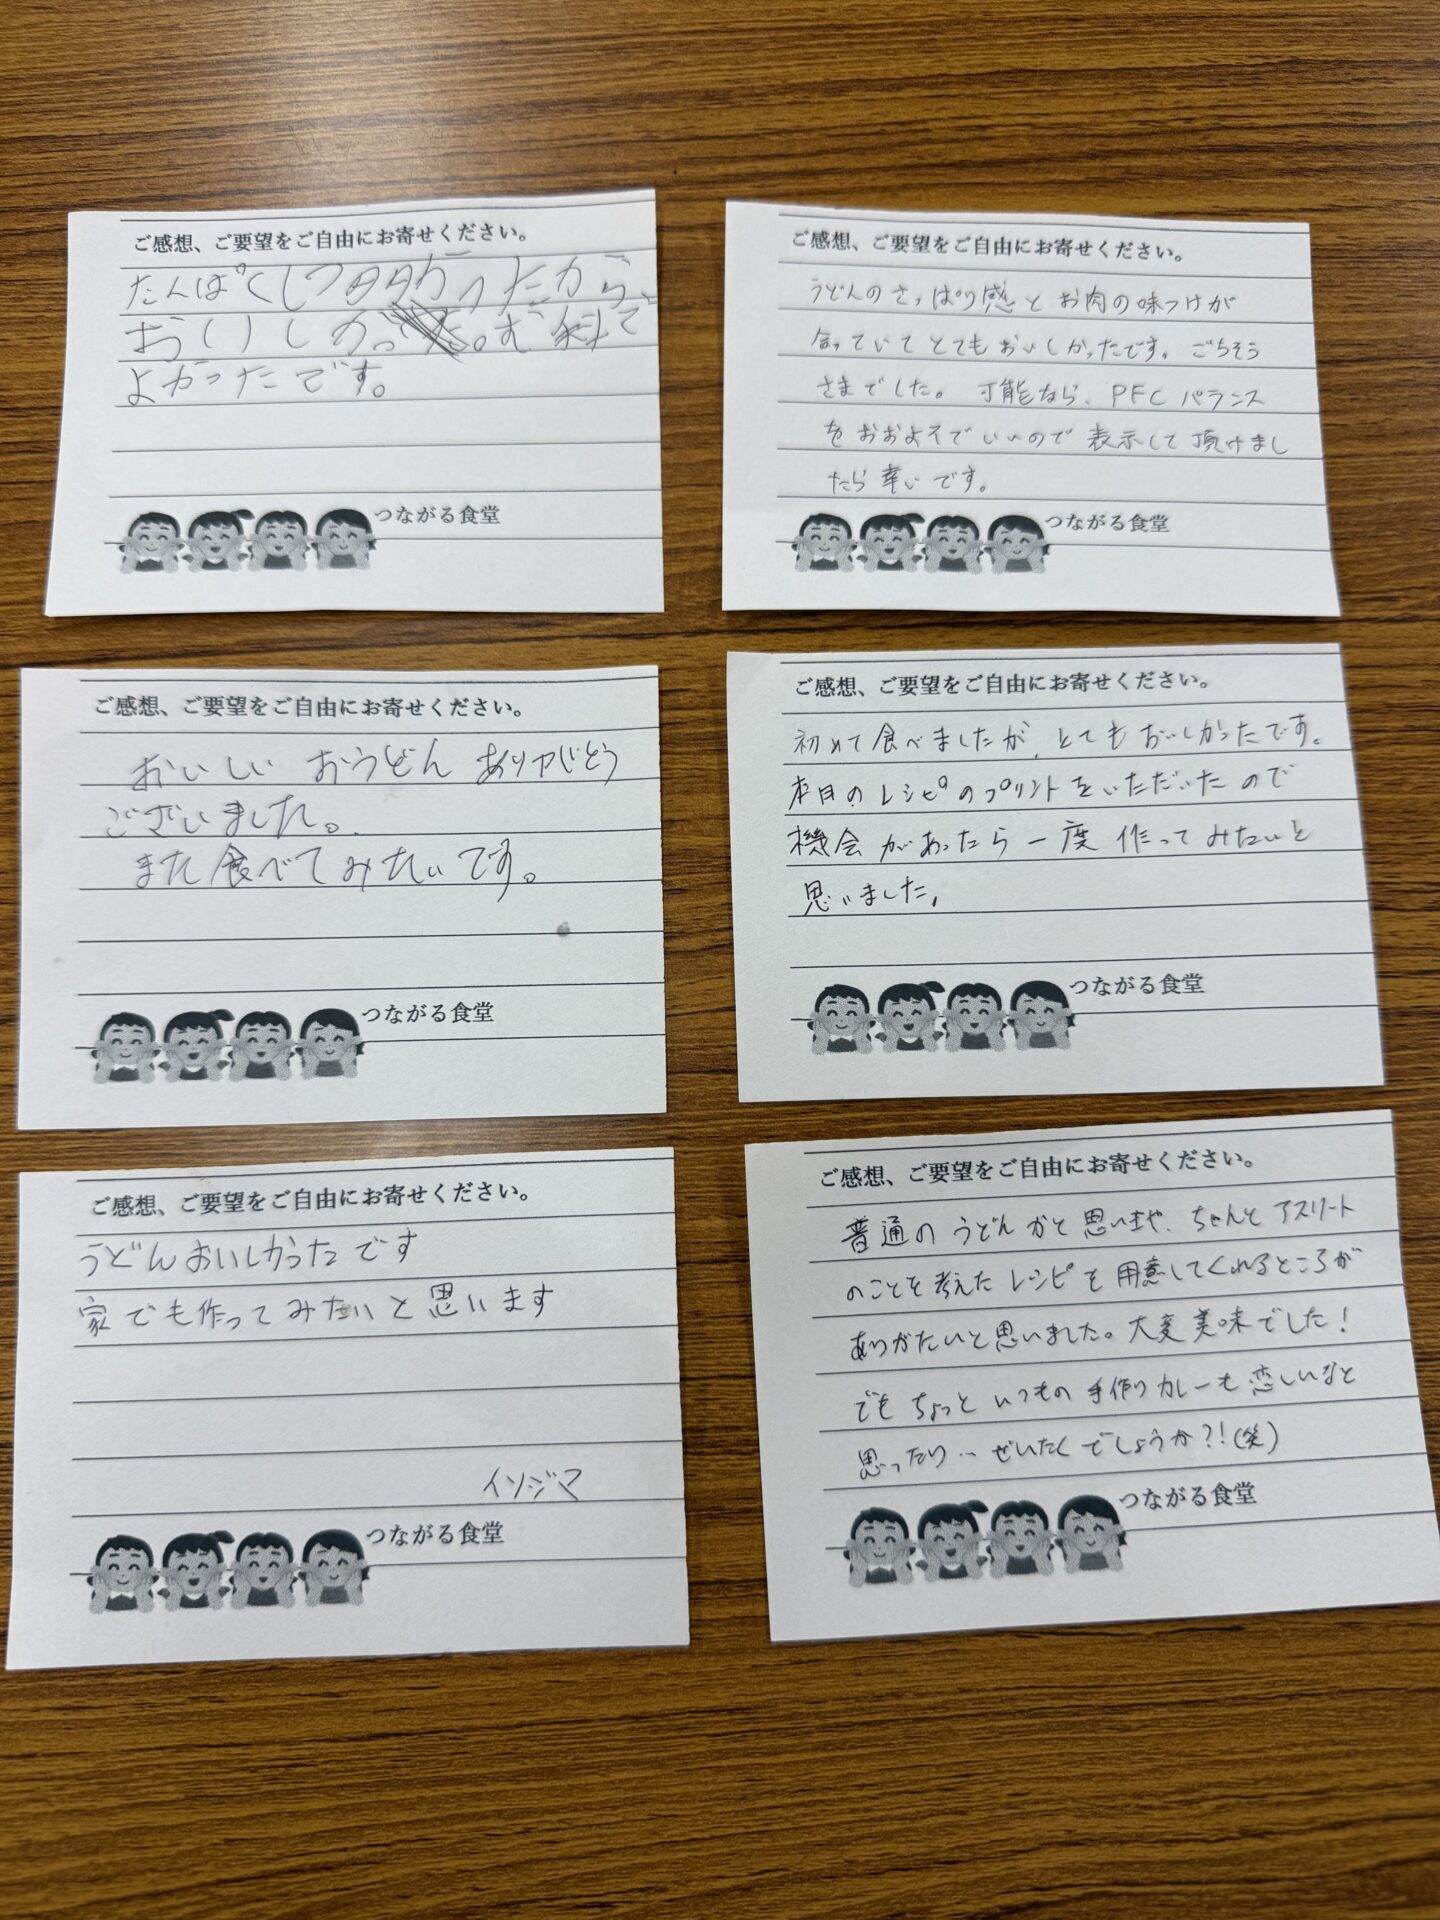 ご感想、ご要望をご自由にお寄せください。
たんぱくしつ多かったから、
おいしかった。む料で
よかったです。
つながる食堂
ご感想、ご要望をご自由にお寄せください。
うどんのさっぱり感とお肉の味つけが
合っていてとてもおいしかったです。ごちそう
さまでした。可能なら、PFCバランス
をおおよそでいいので表示して頂けまし
たら幸いです。
つながる食堂
ご感想、ご要望をご自由にお寄せください。
おいしい おうどん ありがとう
ございました。
また食べてみたいです。
つながる食堂
ご感想、ご要望をご自由にお寄せください。
初めて食べましたが、とてもおいしかったです。
本日のレシピのプリントをいただいたので
機会があったら一度作ってみたいと
思いました。
つながる食堂
ご感想、ご要望をご自由にお寄せください。
うどんおいしかったです
家でも作ってみたいと思います
イソジマ
つながる食堂
ご感想、ご要望をご自由にお寄せください。
普通のうどんかと思いきや、ちゃんとアスリート
のことを考えたレシピを用意してくれるところが
ありがたいと思いました。大変美味でした!
でもちょっといつもの手作りカレーも恋しいなと
思ったり…ぜいたくでしょうか?!(笑)
つながる食堂